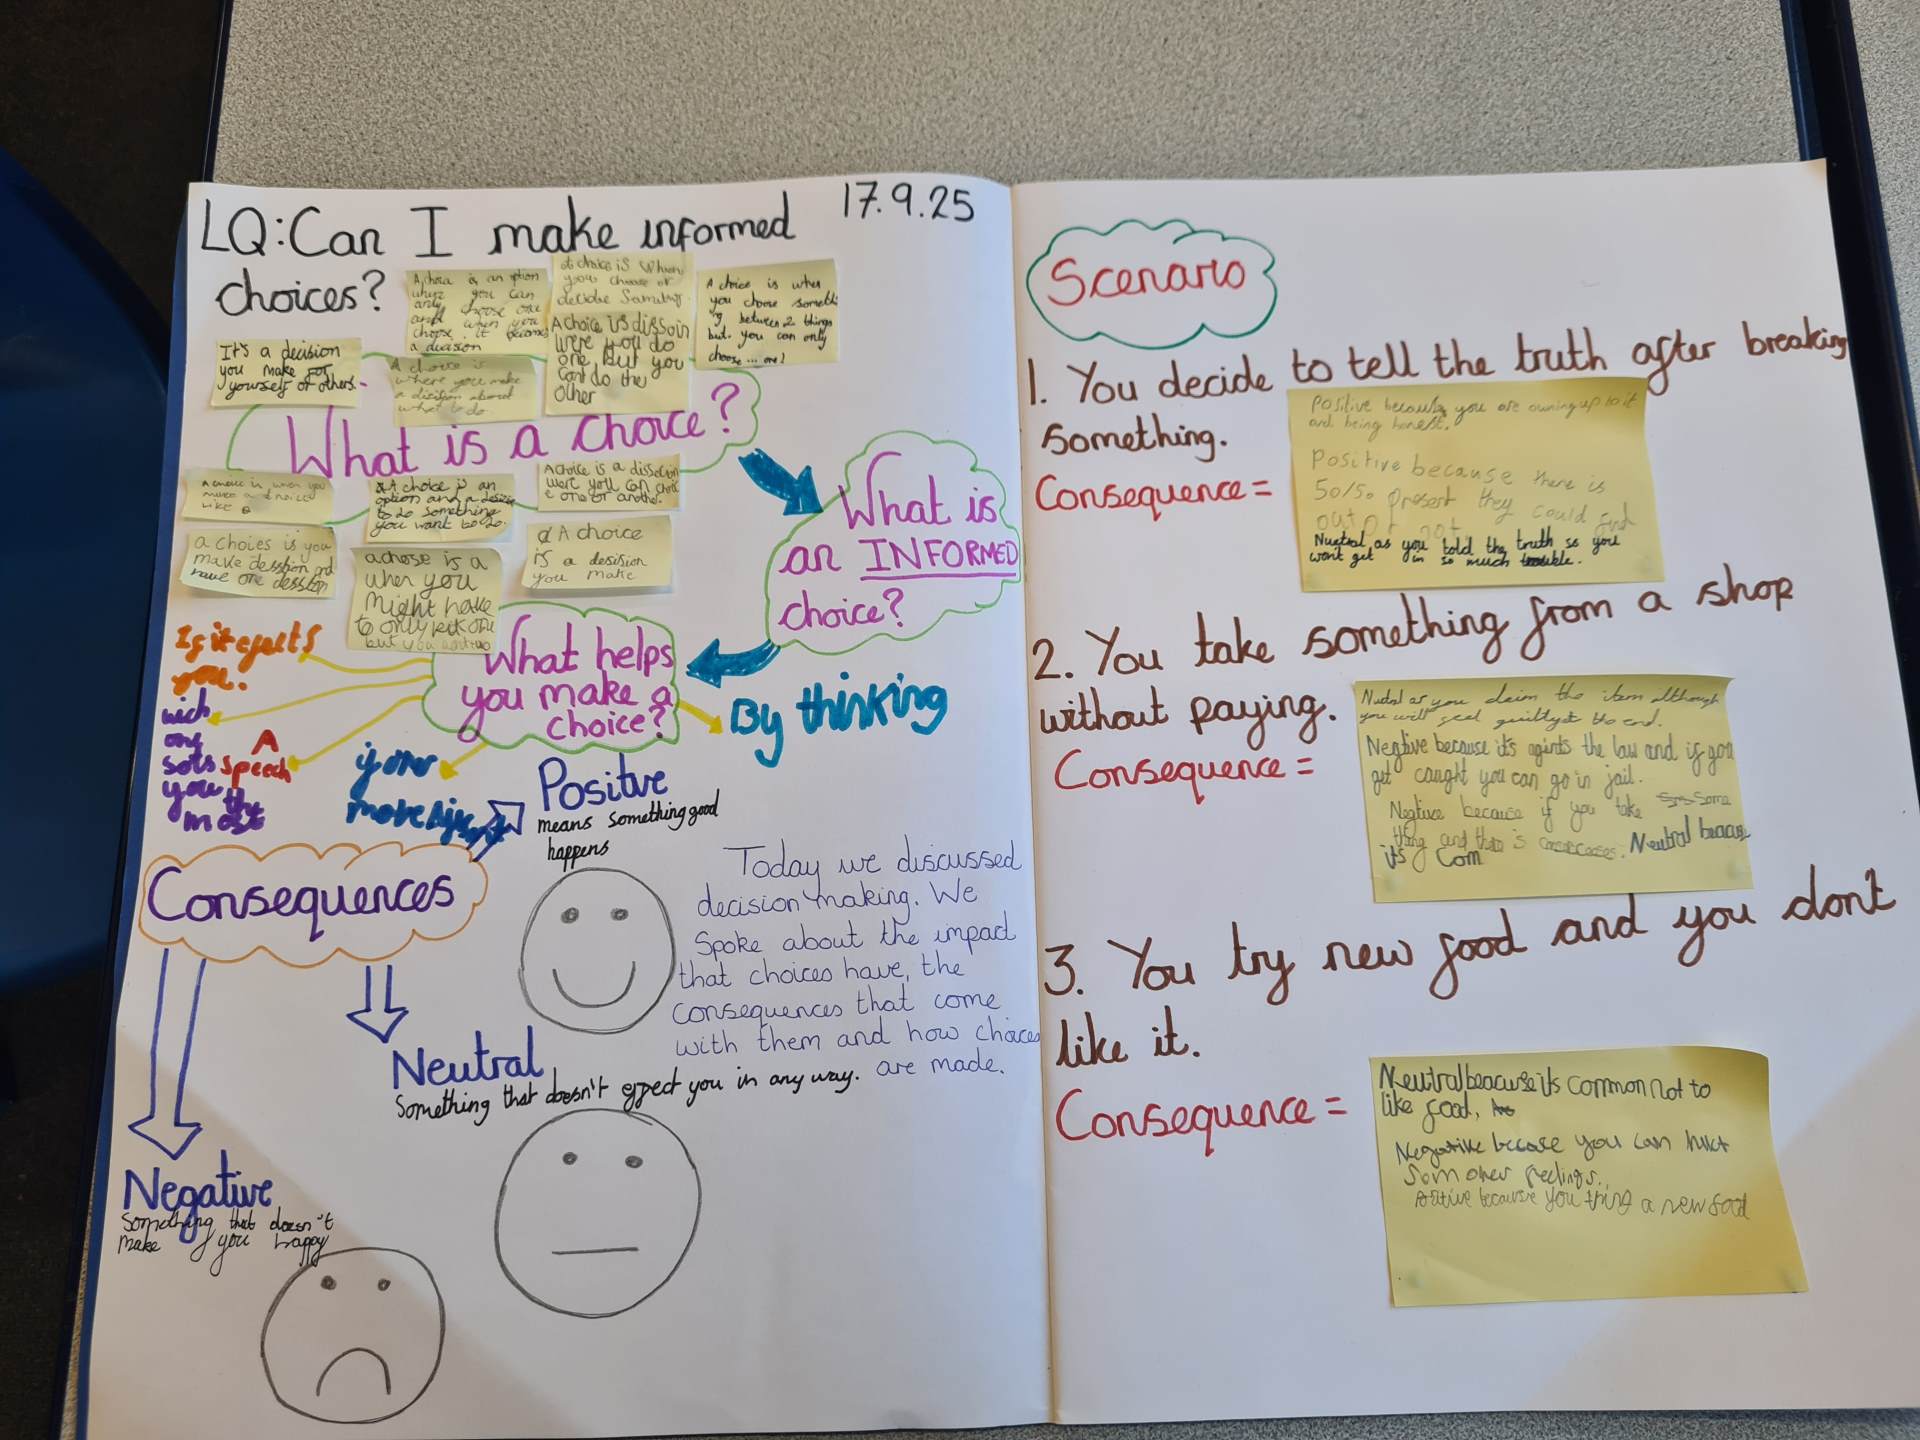 LQ: Can I make informed
choices?
17.9.25
A choice is an option
where you can
only choose one
and when you
choose it becomes
a decision
choice is when
you choose or
decide
A choice is when
you choose
between 2 things
but you can only
choose... one!
It's a decision
you make for
yourself or others.
A choice is
where you make
a decision about
what to do
A choice is dissoin
were you do
one but you
cant do the
other
What is a choice?
A choice is when you
make a
like
A choice is an
option and a
to do something
you want to do.
A choice is a dission
were you can
one or another.
a choies is you
make desstion and
have one desstion
a chose is a
when you
might have
to only pick one
but you want two
A choice
is a desision
you make
What is
an INFORMED
choice?
What helps
you make a
choice?
If it efects
you.
wich
one
sots
you the
most
A
speech
if
By thinking
Positive
means something good
happens
Consequences
Today we discussed
decision making. We
spoke about the impact
that choices have, the
consequences that come
with them and how choices
are made.
Neutral
Something that doesn't effect you in any way.
Negative
Something that doesn't
make you happy
Scenario
1. You decide to tell the truth after breaking
something.
Consequence =
Positive because you are owning up to it
and being honest.
Positive because there is
50/50 present they could find
out or not
Nuetral as you told the truth so you
won't get in so much trouble.
2. You take something from a shop
without paying.
Consequence =
Nutral as you claim the item although
you will feel guilty at the end.
Negtive because it's agints the law and if you
get caught you can go in jail.
Negtive because if you take some
thing and there is Neutral beacuse
its Com
3. You try new food and you dont
like it.
Consequence =
Neutral beacuse its common not to
like food.
Negative becase you can hurt
som ones feelings.
Positive because you a new food